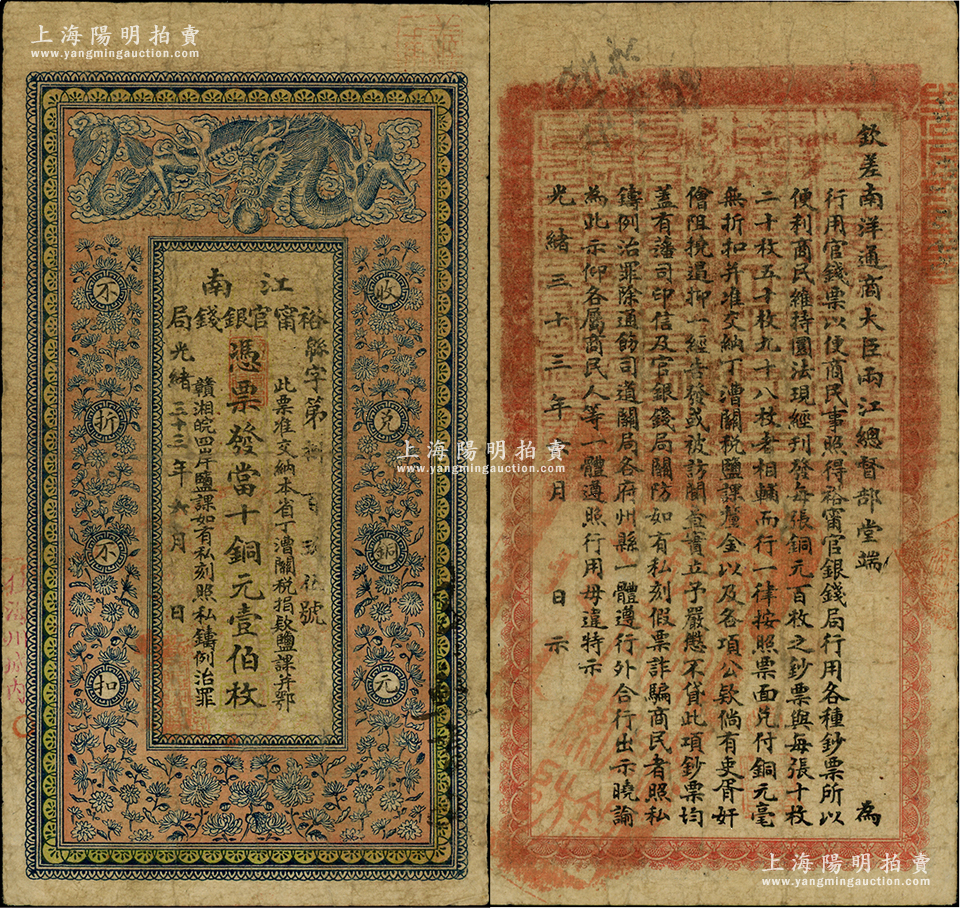 上海陽明拍賣
www.yangmingauction.com
江南
裕甯官銀錢局
聯字第 百 號
憑票發當十銅元壹佰枚
此票准交納本省丁漕關稅捐款鹽課并鄂
贛湘皖四岸鹽課如有私刻照私鑄例治罪
光緒三十三年 月 日
收兌銅元
不折不扣
欽差南洋通商大臣兩江總督部堂端 為
行用官錢票以便商民事照得裕甯官銀錢局行用各種鈔票所以
便利商民維持圜法現經刊發每張銅元百枚之鈔票與每張十枚
二十枚五十枚九十八枚者相輔而行一律按照票面兌付銅元毫
無折扣并准交納丁漕關稅鹽課釐金以及各項公款倘有吏胥奸
儈阻撓還抑一經告發或被訪聞查實立予嚴懲不貸此項鈔票均
蓋有藩司印信及官銀錢局關防如有私刻假票詐騙商民者照私
鑄例治罪除通飭司道關局各府州縣一體遵行外合行出示曉諭
為此示仰各屬商民人等一體遵照行用毋違特示
光緒三十三年 月 日示
上海陽明拍賣
www.yangmingauction.com
上海陽明拍賣
www.yangmingauction.com